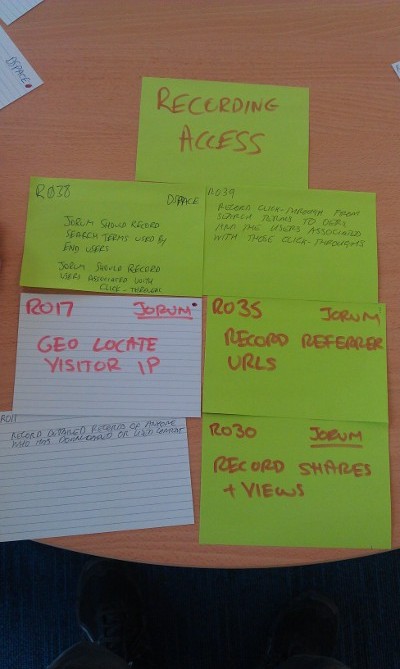 DSPACE
RECORDING
ACCESS
R038
DSPACE
JORUM SHOULD RECORD
SEARCH TERMS USED BY
END USERS
JORUM SHOULD RECORD
USERS ASSOCIATED WITH
CLICK-THROUGHS
R039
RECORD CLICK-THROUGH FROM
SEARCH TERMS TO OERS
AND THE USERS ASSOCIATED
WITH THOSE CLICK-THROUGHS
R017 JORUM
GEO LOCATE
VISITOR IP
R035 JORUM
RECORD REFERRER
URLS
R011
RECORD DETAILED RECORDS OF ANYONE
WHO HAS DOWNLOADED OR USED
R030 JORUM
RECORD SHARES
+ VIEWS